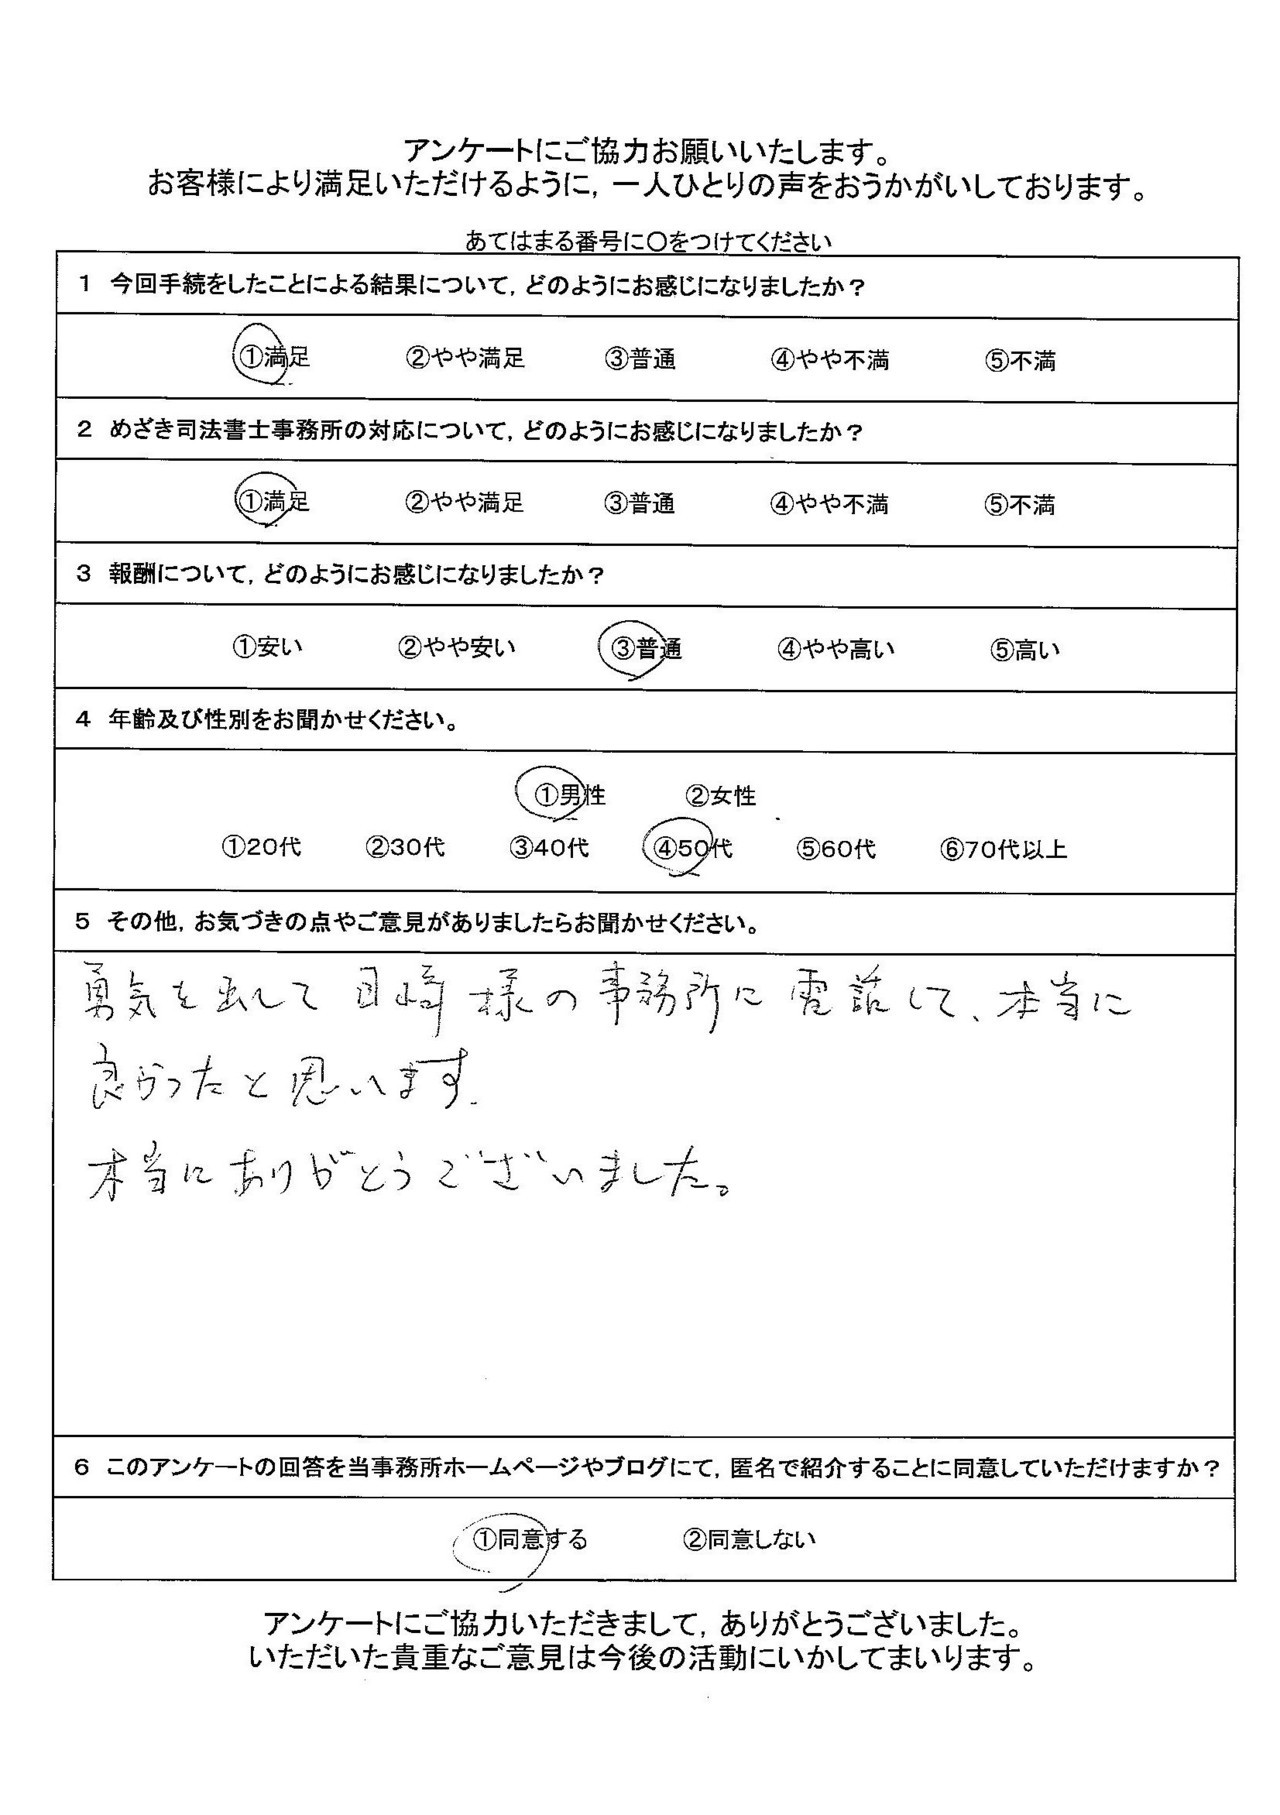 アンケートにご協力お願いいたします。
お客様により満足いただけるように，一人ひとりの声をおうかがいしております。
あてはまる番号に○をつけてください
1 今回手続をしたことによる結果について，どのようにお感じになりましたか？
①満足 ②やや満足 ③普通 ④やや不満 ⑤不満
2 めざき司法書士事務所の対応について，どのようにお感じになりましたか？
①満足 ②やや満足 ③普通 ④やや不満 ⑤不満
3 報酬について，どのようにお感じになりましたか？
①安い ②やや安い ③普通 ④やや高い ⑤高い
4 年齢及び性別をお聞かせください。
①男性 ②女性
①20代 ②30代 ③40代 ④50代 ⑤60代 ⑥70代以上
5 その他，お気づきの点やご意見がありましたらお聞かせください。
勇気を出して目崎様の事務所に電話して、本当に
良かったと思います.
本当にありがとうございました。
6 このアンケートの回答を当事務所ホームページやブログにて，匿名で紹介することに同意していただけますか？
①同意する ②同意しない
アンケートにご協力いただきまして，ありがとうございました。
いただいた貴重なご意見は今後の活動にいかしてまいります。